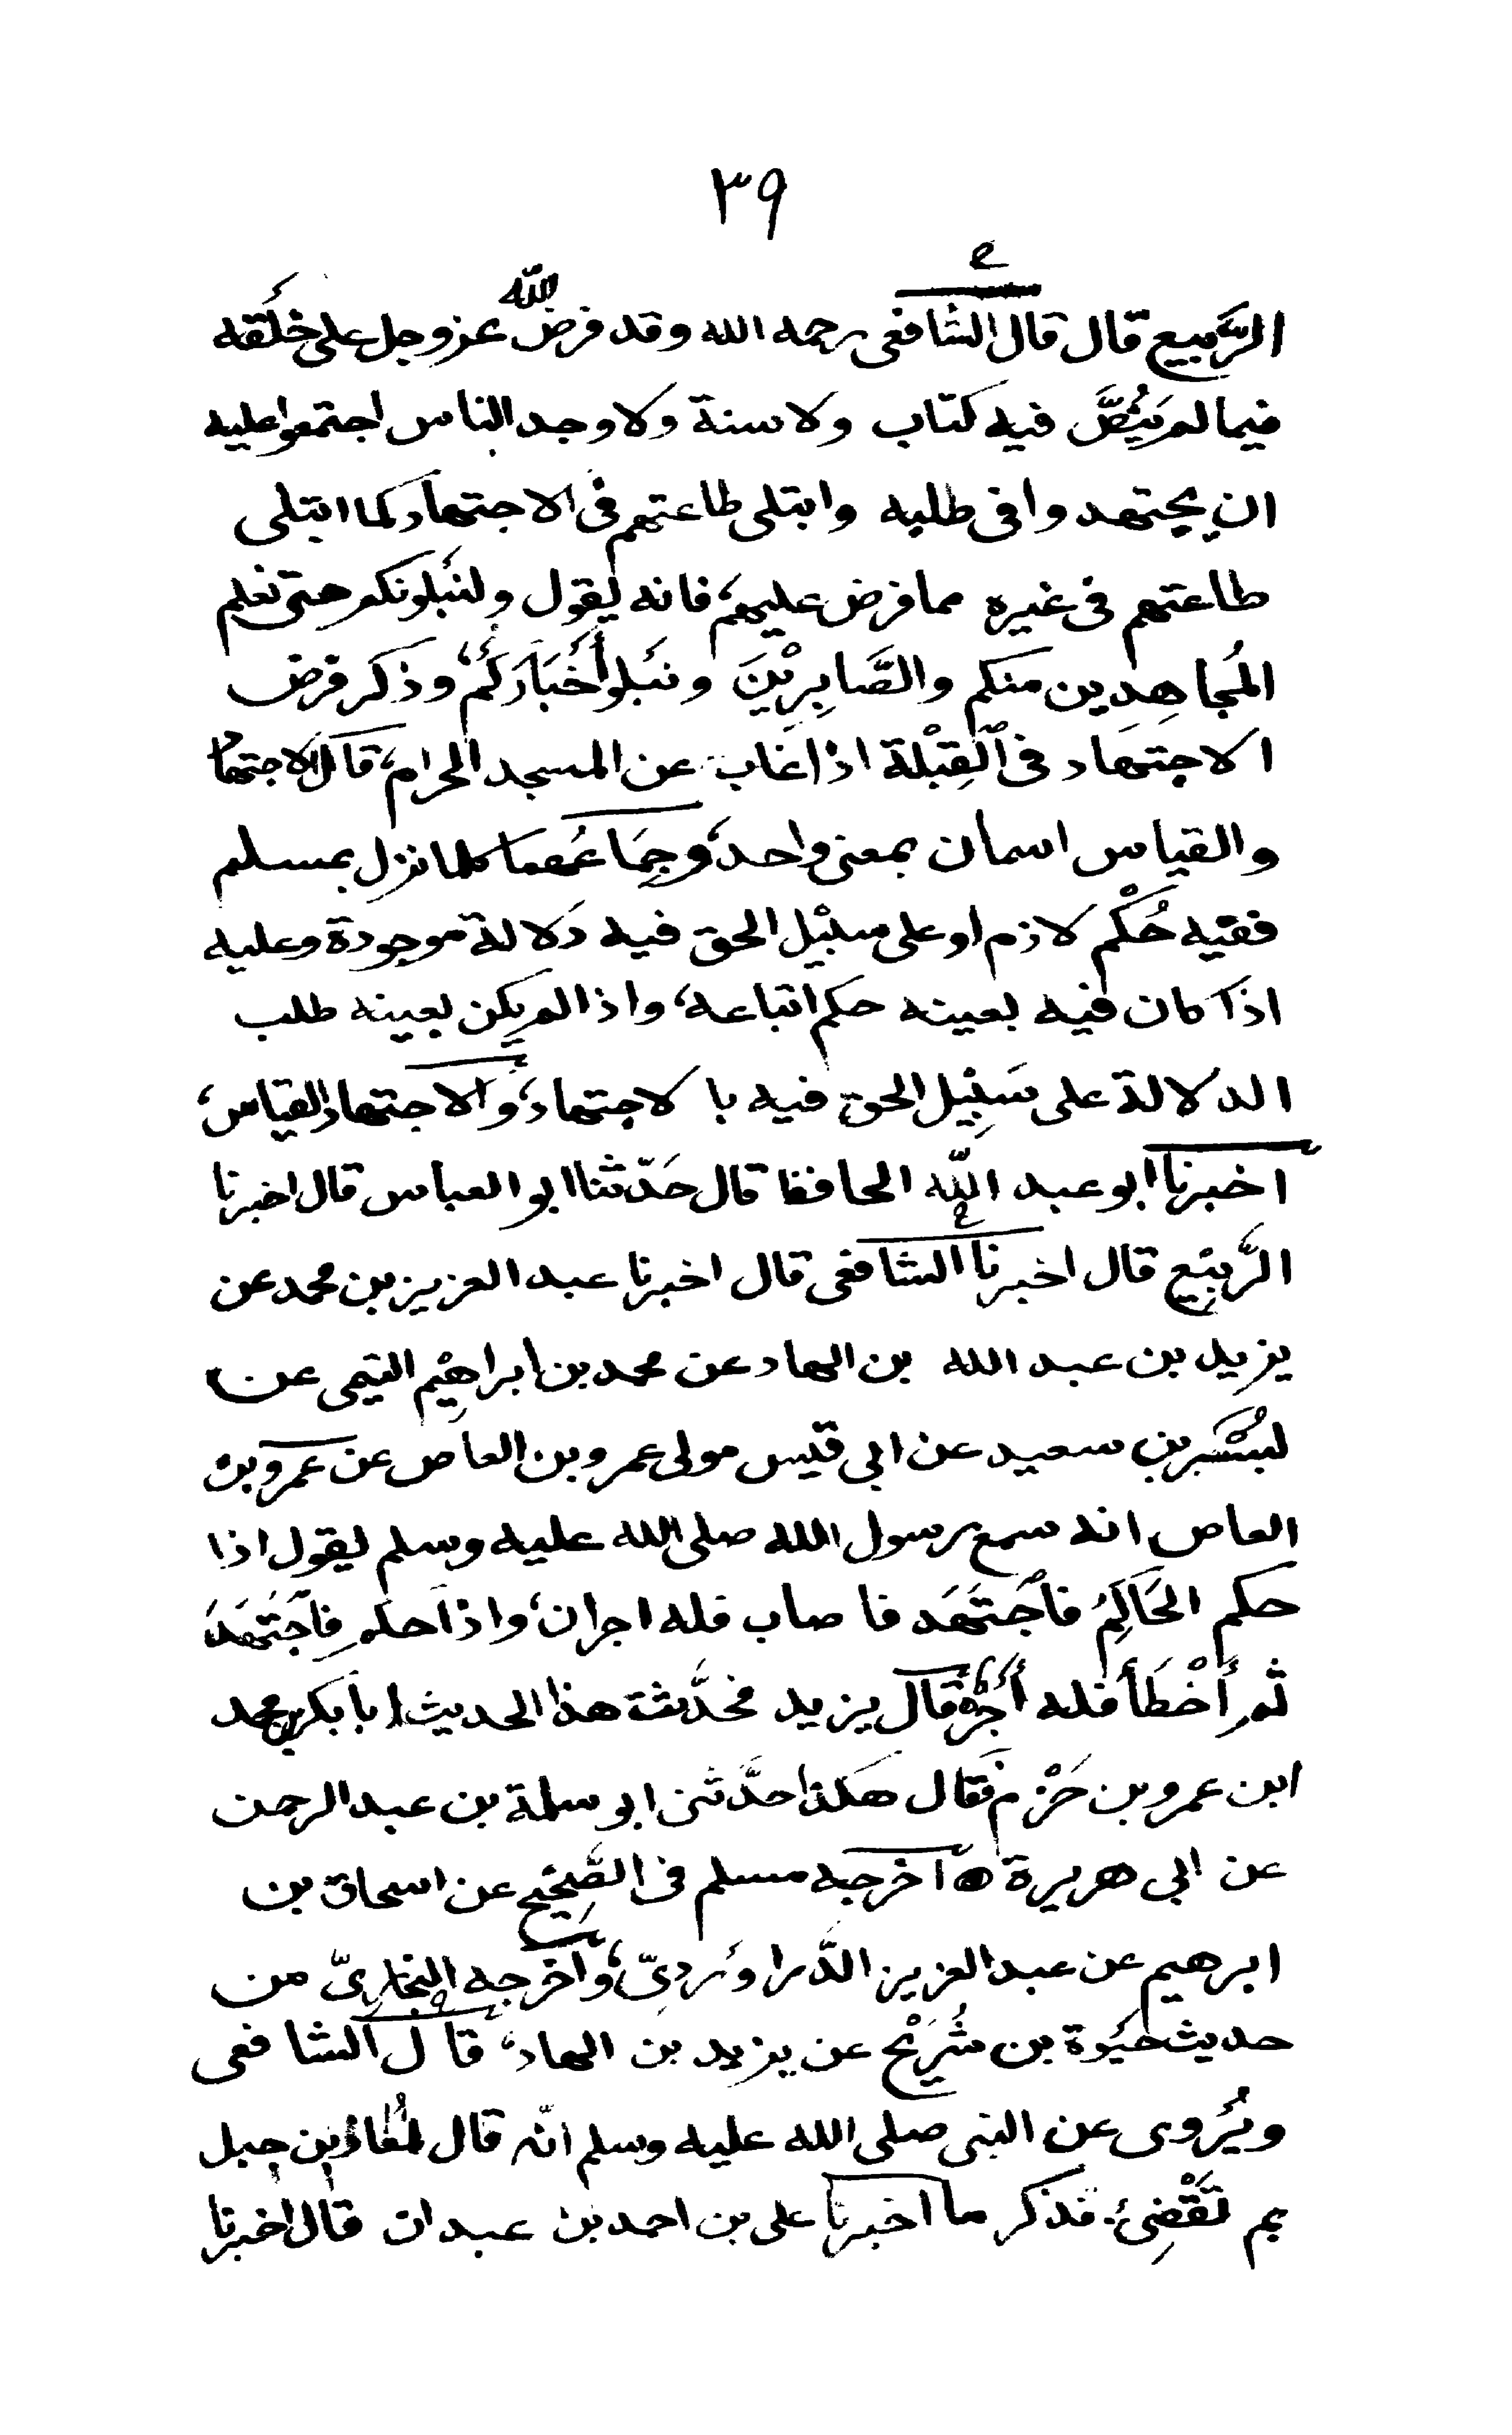 ٣٩
الرَّبيع قال قال الشافعى رحمه الله وقد فرض الله عزوجل على خلقه
فيما لم يَنُصَّ فيه كتاب ولا سنة ولا وجد الناس اجتمعوا عليه
ان يجتهدوا فى طلبه وابتلى طاعتهم فى الاجتهاد كما ابتلى
طاعتهم فى غيره مما فرض عليهم، فانه يقول ولنبلونكم حتى نعلم
المُجاهِدِين منكم والصَّابِرِيْنَ ونبلوا أَخْبَارَكُمْ، وذكر فرض
الاجتهاد فى الْقِبْلة اذا غاب عن المسجد الحرام، قال والاجتهاد
والقياس اسمان بمعنى واحد، وجِمَاعُهما كلما نزل بمسلم
ففيه حُكْم لازم او على سبيْل الحق فيه دَلالة موجودة وعليه
اذا كان فيه بعينه حكم اتباعه، واذا لم يكن بعينه طلب
الدلالة على سَبِيْل الحق فيه بالاجتهاد، والاجتهاد القياس،
اخبرنا ابو عبد اللّٰه الحافظ قال حَدّثنا ابو العباس قال اخبرنا
الرَّبِيْع قال اخبرنا الشافعى قال اخبرنا عبد العزيز بن محمد عن
يزيد بن عبد الله بن الهاد عن محمد بن ابراهِيْم التيمى عن
بُسْر بن سعيد عن ابى قيس مولى عمرو بن العاص عن عمرو بن
العاص انه سمع رسول الله صلى الله عليه وسلم يقول اذا
حكم الحَاكِمُ فاجْتَهَد فاصاب فله اجران، واذا حكم فاجْتَهَدَ
ثم أَخْطَأَ فله أَجْرٌ قال يزيد فحدَّثت هذا الحديث ابا بكر بن محمد
ابن عمرو بن حَزْم فقال هكذا حدَّثنى ابو سلمة بن عبد الرحمن
عن ابى هريرة ه اخرجه مسلم فى الصَّحِيْح عن اسحاق بن
ابرهيم عن عبد العزيز الدَّراوَردِىّ، واخرجه البخارىّ من
حديث حَيْوَة بن شُرَيْح عن يزيد بن الهاد، قال الشافعى
ويُروى عن النبى صلى الله عليه وسلم انّه قال لمُعَاذ بن جبل
بم تَقْضِىْ. فذكر ما اخبرنا على بن احمد بن عبدان قال اخبرنا